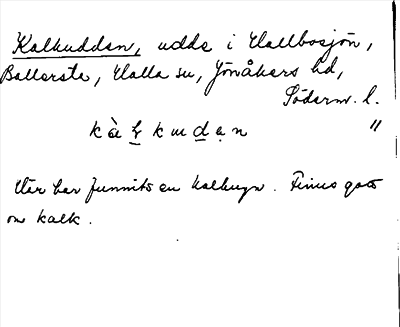 Kalkudden, udde i Hallbosjön,
Ballersta, Halla sn, Jönåkers hd,
Söderm. l.
k à l k u d ə n "
Här har funnits en kalkugn. Finns gott
om kalk.